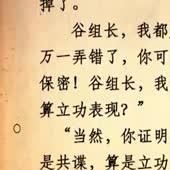 掉了。
谷组长，我都
万一弄错了，你可
保密！谷组长，我
算立功表现？”
“当然，你证明
是共谍，算是立功